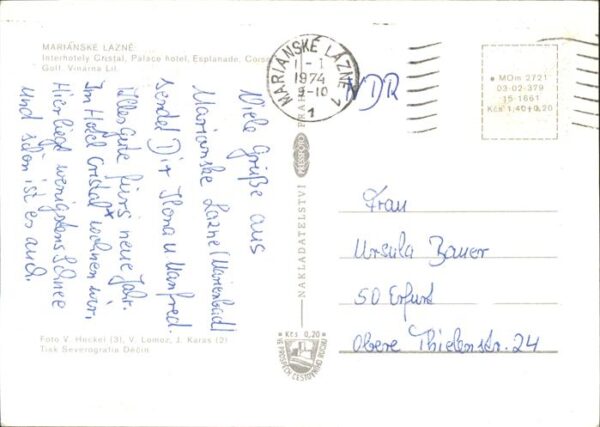 MARIÁNSKÉ LÁZNĚ
Interhotely Cristal, Palace hotel, Esplanade, Corso
Golf. Vinárna Lil.
Viele Grüße aus
Marianske Lazne (Marienbad)
sendet Dir Ilona u. Manfred.
Alles Gute fürs neue Jahr.
Im Hotel Cristal x wohnen wir.
Hier liegt wenigstens Schnee
und schön ist es auch.
Foto V. Heckel (3), V. Lomoz, J. Karas (2)
Tisk Severografia Děčín
MARIÁNSKÉ LÁZNĚ 1
1.-1
1974
9-10
1
NDR
MOm 2721
03-02-379
15-1661
Kčs 1,40+0,20
NAKLADATELSTVÍ PRESSFOTO PRAHA
Kčs 0,20
VE PROSPĚCH CESTOVNÍHO RUCHU
Frau
Ursula Bauer
50 Erfurt
Obere Thielenstr. 24